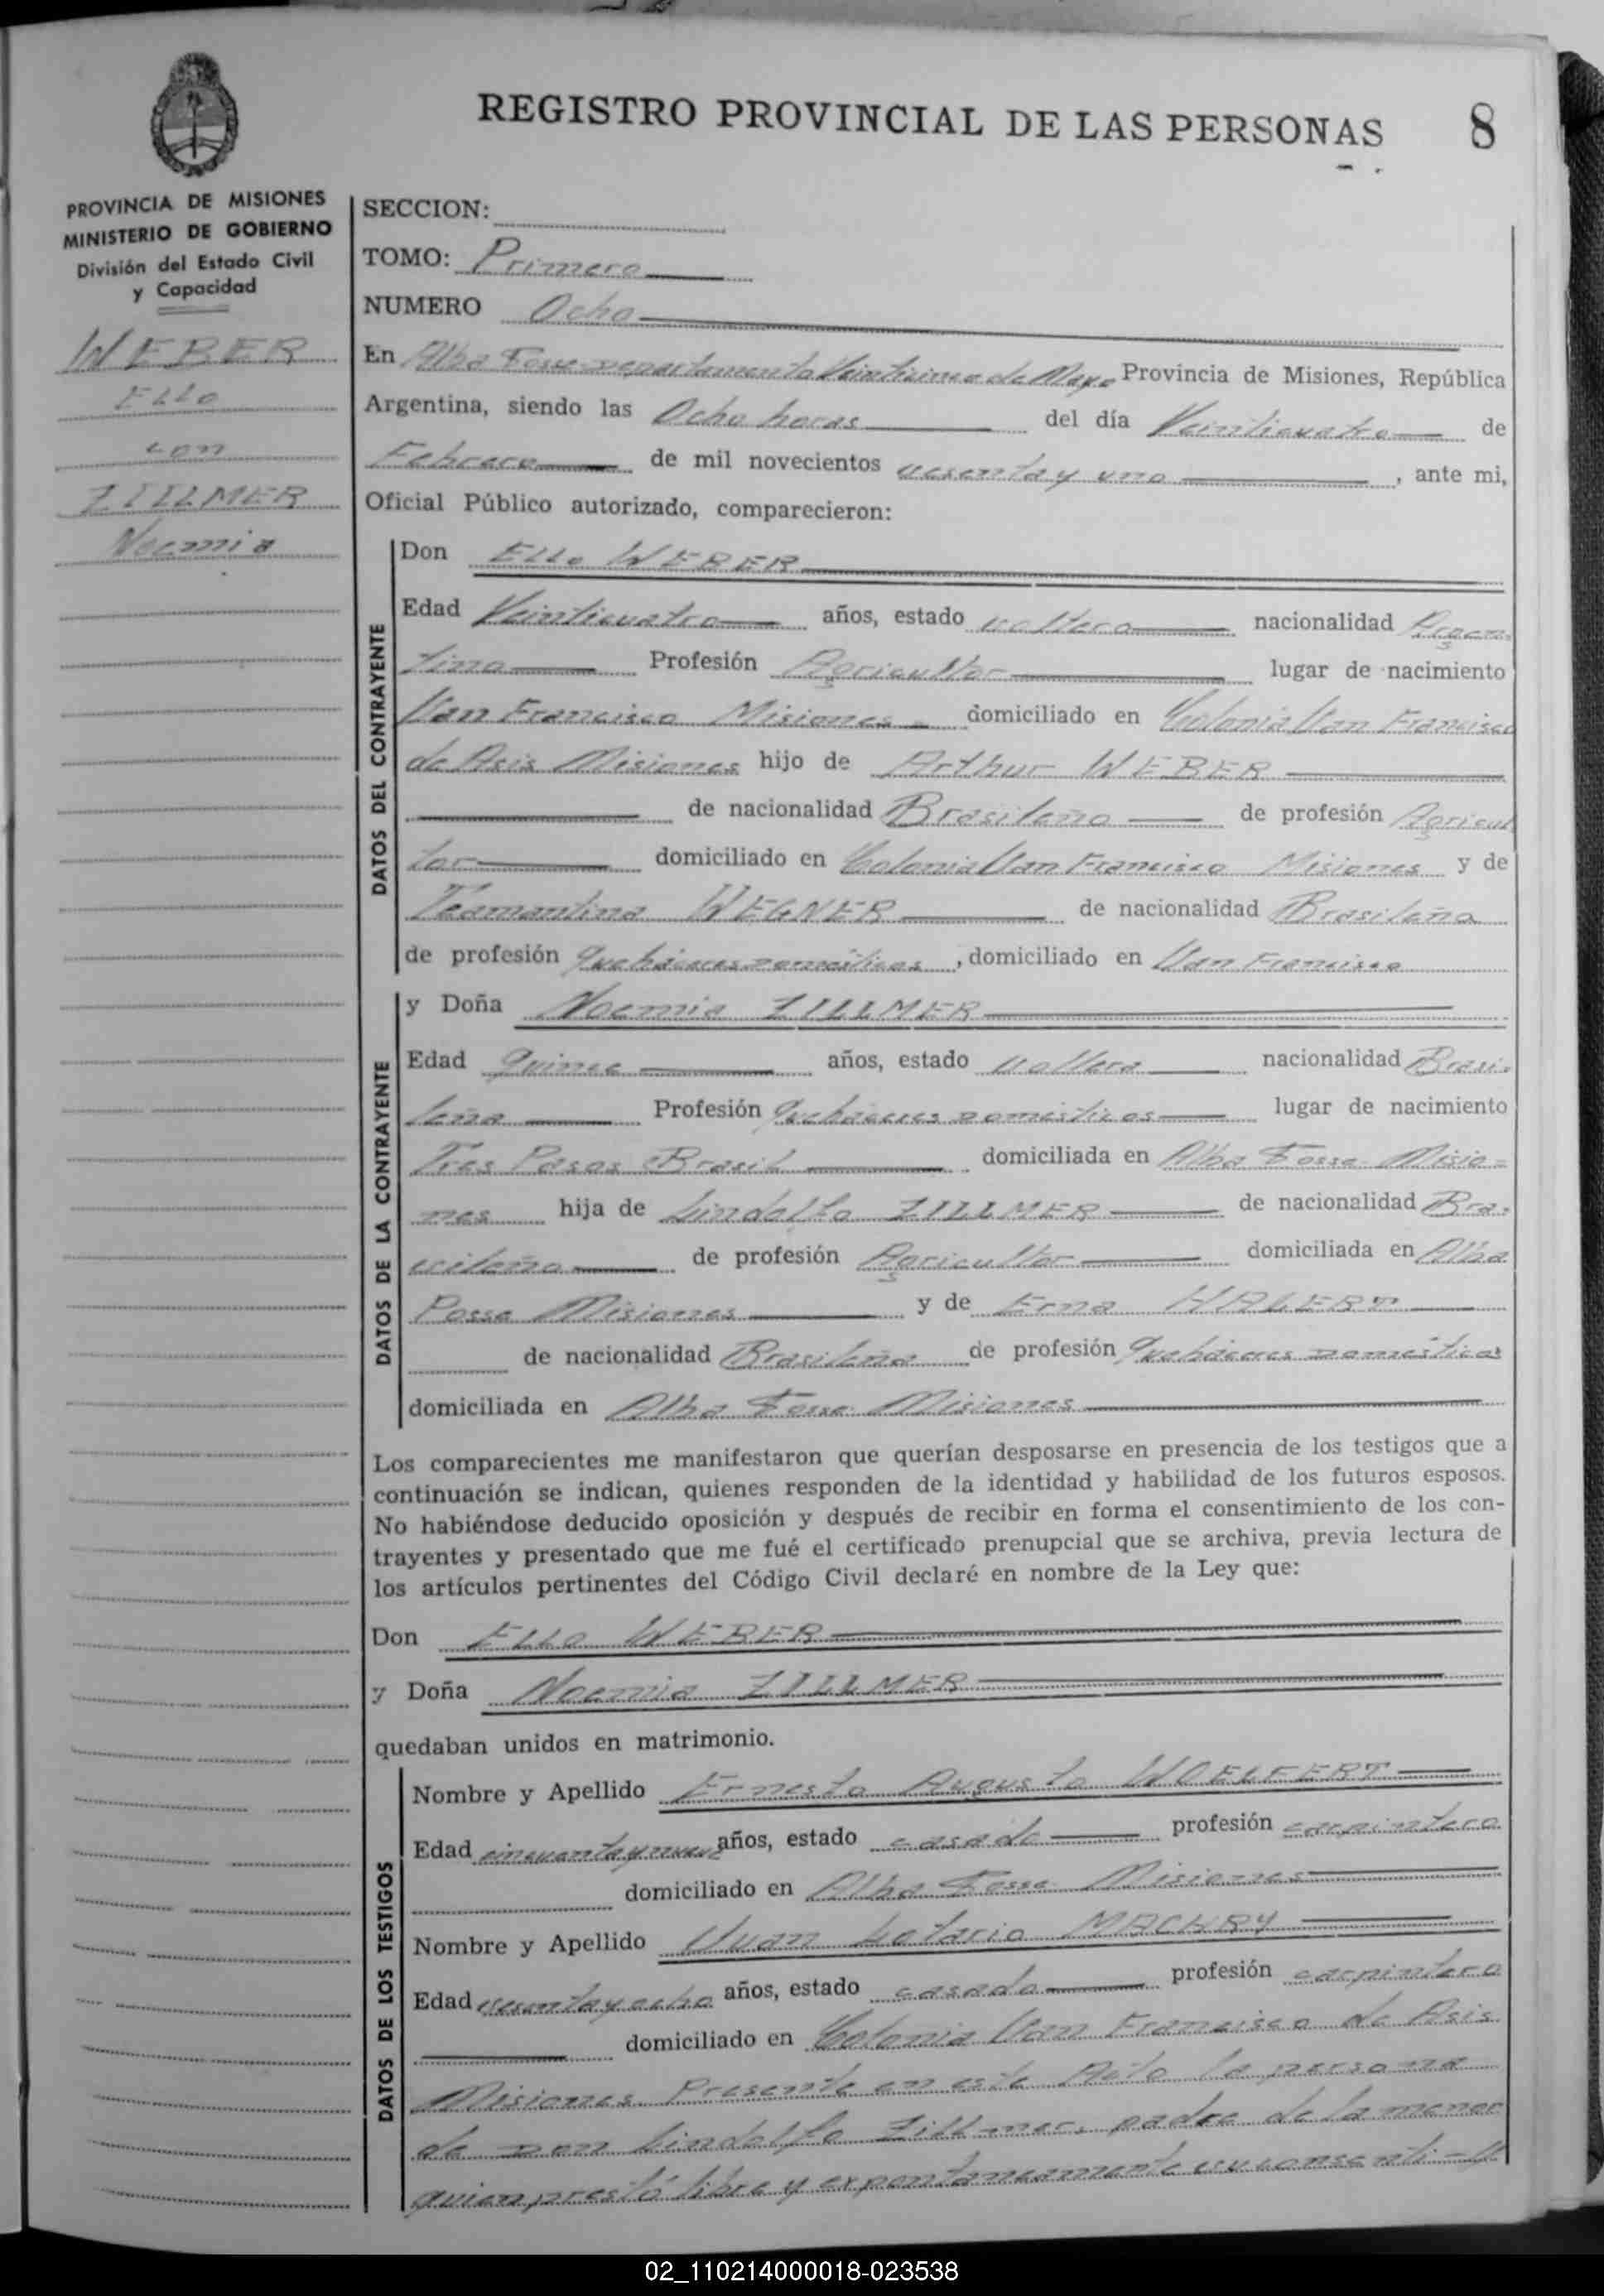 REGISTRO PROVINCIAL DE LAS PERSONAS 8
PROVINCIA DE MISIONES
MINISTERIO DE GOBIERNO
División del Estado Civil
y Capacidad
WEBER
Ello
con
ZILLMER
Noemia
SECCION:
TOMO: Primero
NUMERO Ocho
En Alba Posse Departamento Veinticinco de Mayo Provincia de Misiones, República
Argentina, siendo las Ocho horas del día Veinticuatro de
Febrero de mil novecientos sesenta y uno, ante mi,
Oficial Público autorizado, comparecieron:
DATOS DEL CONTRAYENTE
Don Ello WEBER
Edad Veinticuatro años, estado soltero nacionalidad Argen-
tino Profesión Agricultor lugar de nacimiento
San Francisco Misiones domiciliado en Colonia San Francisco
de Asis Misiones hijo de Arthur WEBER
de nacionalidad Brasileño de profesión Agricul
tor domiciliado en Colonia San Francisco Misiones y de
WEGNER de nacionalidad Brasileña
de profesión Quehaceres Domésticos, domiciliado en San Francisco
DATOS DE LA CONTRAYENTE
y Doña Noemia ZILLMER
Edad Quince años, estado soltera nacionalidad Brasi-
leña Profesión Quehaceres Domésticos lugar de nacimiento
Tres Pasos Brasil domiciliada en Alba Posse Misio-
nes hija de Lindolfo ZILLMER de nacionalidad Bra-
sileño de profesión Agricultor domiciliada en Alba
Posse Misiones y de Erna
de nacionalidad Brasileña de profesión Quehaceres Domésticos
domiciliada en Alba Posse Misiones
Los comparecientes me manifestaron que querían desposarse en presencia de los testigos que a
continuación se indican, quienes responden de la identidad y habilidad de los futuros esposos.
No habiéndose deducido oposición y después de recibir en forma el consentimiento de los con-
trayentes y presentado que me fué el certificado prenupcial que se archiva, previa lectura de
los artículos pertinentes del Código Civil declaré en nombre de la Ley que:
Don Ello WEBER
y Doña Noemia ZILLMER
quedaban unidos en matrimonio.
DATOS DE LOS TESTIGOS
Nombre y Apellido Ernesto Augusto WOELFERT
Edad cincuenta y nueve años, estado casado profesión carpintero
domiciliado en Alba Posse Misiones
Nombre y Apellido Juan Lotario MACHRY
Edad sesenta y ocho años, estado casado profesión carpintero
domiciliado en Colonia San Francisco de Asis
Misiones Presente en este Acto la persona
de Don Lindolfo Zillmer, padre de la menor
quien prestó libre y expontaneamente su consenti-
02_110214000018-023538